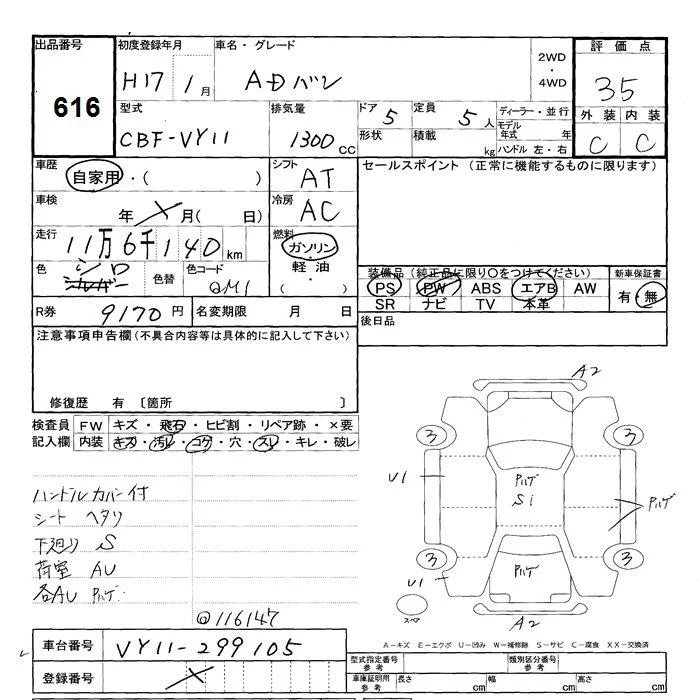 出品番号 初度登録年月 車名・グレード 評価点
616
H17 1月 ADバン 2WD・4WD 35
型式 排気量 ドア 定員 ディーラー・並行 外装 内装
CBF-VY11 1300CC 5 5人 モデル年式 年 C C
形状 積載 kg ハンドル 左・右
車歴 シフト セールスポイント (正常に機能するものに限ります)
自家用・( ) AT
車検 冷房
年 月( 日) AC
走行 燃料
11万6千140km ガソリン・軽油・( )
色 シロ シルバー 色替 色コード QM1
装備品(純正品に限り○をつけてください) 新車保証書
PS PW ABS エアB AW 有・無
SR ナビ TV 本革
R券 9170円 名変期限 月 日 後日品
注意事項申告欄(不具合内容等は具体的に記入して下さい)
修復歴 有 〔箇所 〕
検査員記入欄 FW キズ・飛石・ヒビ割・リペア跡・×要
内装 キズ・汚レ・コゲ・穴・スレ・キレ・破レ
A2
3 3
U1 Pハゲ S1 Pハゲ
ハンドルカバー付
シート ヘタリ
下廻り S
荷室 AU
各AU Pハゲ
3 Pハゲ 3
U1
スペア A2
@116147
A-キズ E-エクボ U-凹み W-補修跡 S-サビ C-腐食 XX-交換済
車台番号 VY11-299105
型式指定番号 参考 類別区分番号 参考
登録番号
車庫証明用 参考 長さ cm 幅 cm 高さ cm